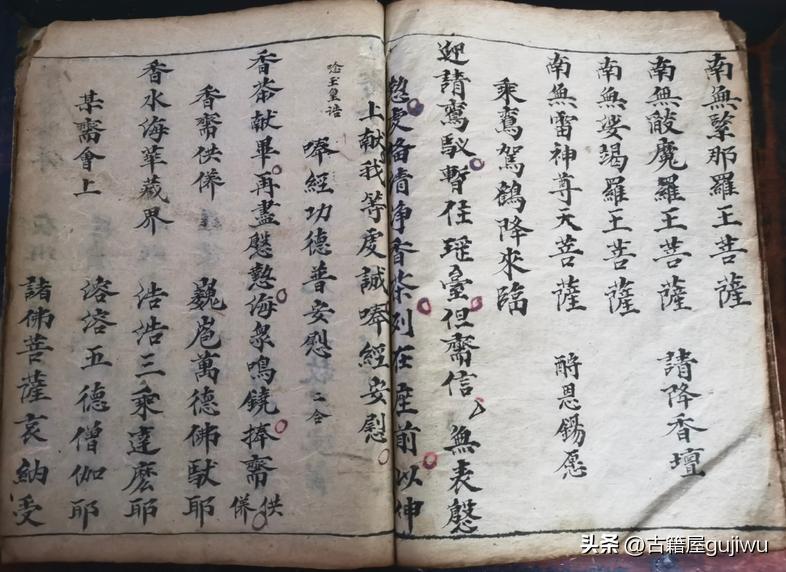 南無緊那羅王菩薩
南無散魔羅王菩薩 請降香壇
南無娑竭羅王菩薩
南無雷神尊天菩薩 酧恩錫愿
乘鸞駕鶴降來臨
迎請鸞馭暫住瑶臺但齋信無表慇
懃處俻清净香茶列在座前以伸
上献我等虔誠唪經安慰
唪經功德普安慰 二合
唸玉皇诰
香茶献畢再盡慇懃海衆鳴鐃捧齋供養
香齋供養 巍巍萬德佛馱耶
香水海華蔵界 浩浩三乘達麽耶
某齋會上 溶溶五德僧伽耶
諸佛菩薩哀納受
头条 @古籍屋gujiwu